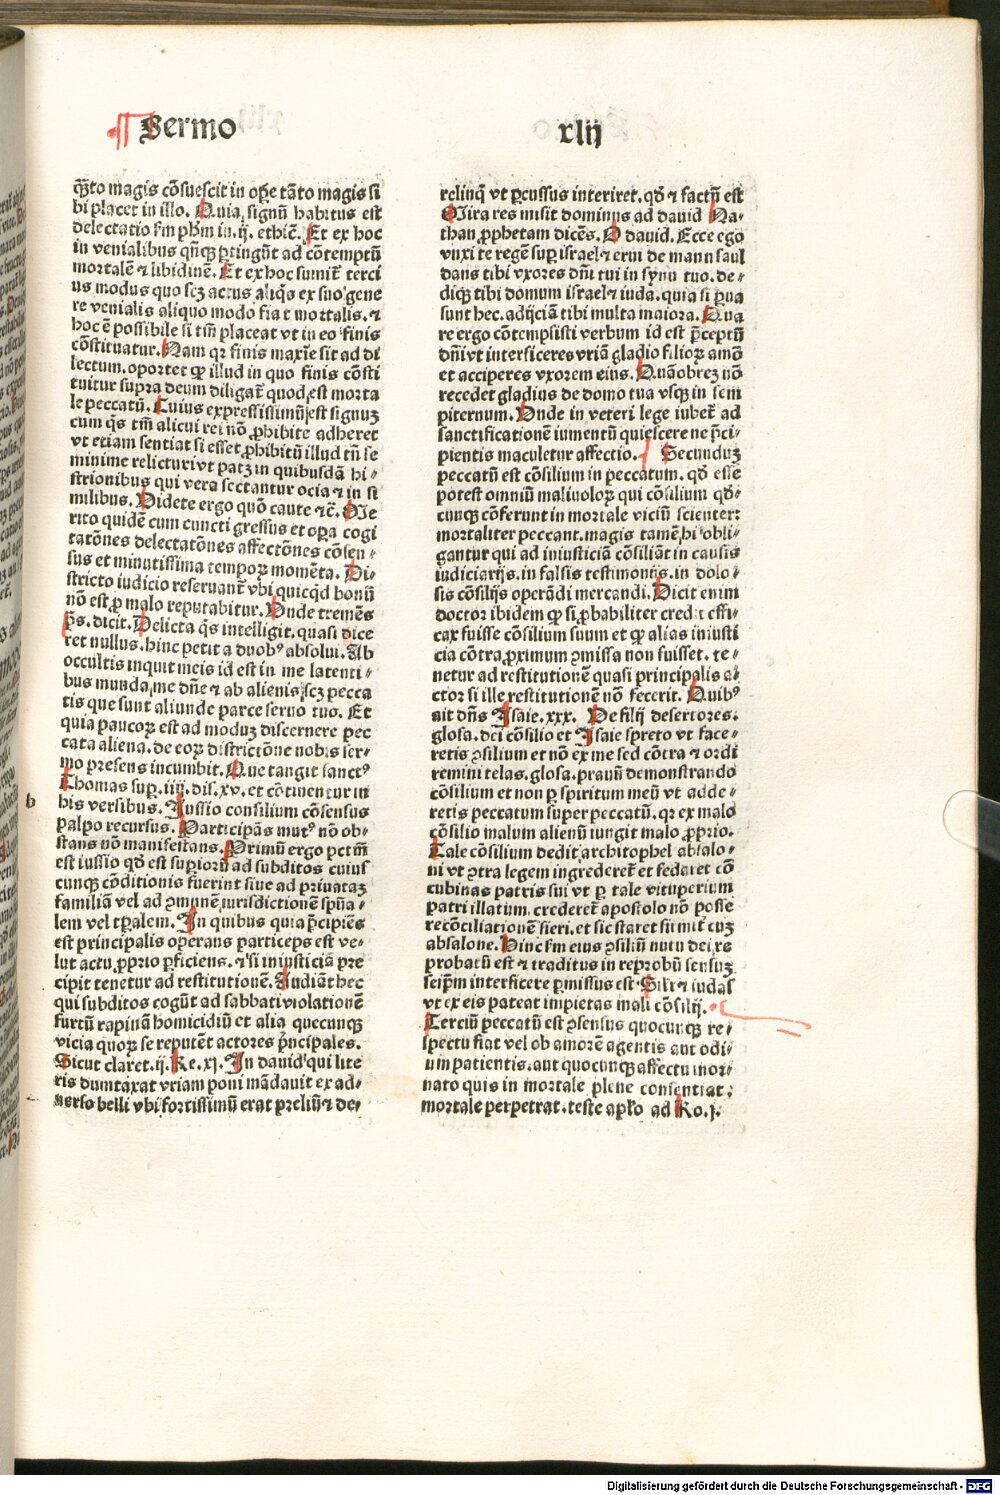 Sermo xlij
q̄ꝫto magis cōsuescit in oꝑe tāto magis si
bi placet in illo. Quia signū habitus est
delectatio ẜm ph̄m in. ij. ethic̄. Et ex hoc
in venialibus qn̄qꝫ ꝑtingūt ad cōtemptū
mortalē ⁊ libidinē. Et ex hoc sumit̄ terci
us modus quo scꝫ actus aliq̄s ex suo gene
re venialis aliquo modo fiat mortalis. ⁊
hoc ē possibile si tm̄ placeat vt in eo finis
cōstituatur. Nam qꝛ finis maxīe sit ad di
lectum. oportet ꝙ illud in quo finis cōsti
tuitur supra deum diligat̄ quod est morta
le peccatū. Cuius expressissimū est signuꝫ
cum q̄s tm̄ alicui rei nō ꝓhibite adheret
vt etiam sentiat si esset ꝓhibitū illud tn̄ se
minime relicturi vt patꝫ in quibusdā hi⸗
strionibus qui vera sectantur ocia ⁊ in si
milibus. Videte ergo quō caute ⁊c̄. Me
rito quidē cum cuncti gressus et oꝑa cogi
tatōnes delectatōnes affectōnes cōsen⸗
sus et minutissima tempoꝝ momēta. Di⸗
stricto iudicio reseruant̄ vbi quicq̄d bonū
nō est ꝓ malo reputabitur. Unde tremēs
p̄s. dicit. Delicta q̄s intelligit. quasi dice
ret nullus. hinc petit a duobꝰ absolui. Ab
occultis inquit meis id est in me latenti⸗
bus munda me dn̄e ⁊ ab alienis scꝫ pecca
tis que sunt aliunde parce seruo tuo. Et
quia paucoꝝ est ad moduꝫ discernere pec
cata aliena. de eoꝝ districtōne nobis ser⸗
mo presens incumbit. Que tangit sanctꝰ
Thomas suꝑ. iiij. dis. xv. et cōtinentur in
b
his versibus. Iussio consilium cōsensus
palpo recursus. Participās mutꝰ nō ob⸗
stans nō manifestans. Primū ergo pctm̄
est iussio qd̄ est suꝑioꝝ ad subditos cuius
cunqꝫ cōditionis fuerint siue ad priuataꝫ
familiā vel ad ꝯmunē iurisdictionē sp̄ua⸗
lem vel tꝑalem. In quibus quia p̄cipiēs
est principalis operans particeps est ve⸗
lut actu ꝓprio ꝑficiens. ⁊ si iniusticiā pre
cipit tenetur ad restitutionē. Audiāt hec
qui subditos cogūt ad sabbati violationē
furtū rapinā homicidiū et alia quecunqꝫ
vicia quoꝝ se reputēt actores p̄ncipales.
Sicut claret. ij. Re. xj. In dauid qui lite
ris dumtaxat vriam poni mādauit ex ad⸗
uerso belli vbi fortissimū erat preliū ⁊ de⸗
relinq̄ vt ꝑcussus interiret. qd̄ ⁊ factū est
Mira res misit dominus ad dauid Na⸗
than ꝓphetam dicēs. O dauid. Ecce ego
vnxi te regē suꝑ israel ⁊ erui de manu saul
dans tibi vxores dn̄i tui in synu tuo. de⸗
diqꝫ tibi domum israel ⁊ iuda. quia si ꝑua
sunt hec. adijciā tibi multa maiora. Qua
re ergo cōtempsisti verbum id est p̄ceptū
dn̄i vt interficeres vriā gladio filioꝝ amō
et acciperes vxorem eius. Quāobreꝫ nō
recedet gladius de domo tua vsqꝫ in sem
piternum. Unde in veteri lege iubet̄ ad
sanctificationē iumentū quiescere ne p̄ci⸗
pientis maculetur affectio. Secunduꝫ
peccatū est cōsilium in peccatum. qd̄ esse
potest omniū maliuoloꝝ qui cōsilium qd̄⸗
cunqꝫ cōferunt in mortale viciū scienter:
mortaliter peccant. magis tamē hi obli⸗
gantur qui ad iniusticiā cōsiliāt in causis
iudiciarijs. in falsis testimonijs. in dolo⸗
sis cōsilijs operādi mercandi. Dicit enim
doctor ibidem ꝙ si ꝓbabiliter credat effi⸗
cax fuisse cōsilium suum et ꝙ alias iniusti
cia cōtra ꝓximum ꝯmissa non fuisset. te⸗
netur ad restitutionē quasi principalis a⸗
ctor si ille restitutionē nō fecerit. Quibꝰ
ait dn̄s Isaie. xxx. Ve filij desertores.
glosa. dei cōsilio et Isaie spreto vt face⸗
retis ꝯsilium et nō ex me sed cōtra ⁊ ordi
remini telas. glosa. prauū demonstrando
cōsilium et non ꝑ spiritum meū vt adde⸗
retis peccatum super peccatū. qꝛ ex malo
cōsilio malum alienū iungit malo ꝓprio.
Tale cōsilium dedit architophel absalo⸗
ni vt ꝯtra legem ingrederet̄ et fedaret cō
cubinas patris sui vt ꝑ tale vituperium
patri illatum. crederet apostolo nō posse
recōciliationē fieri. et sic staret firmit̄ cuꝫ
absalone. Hinc ẜm eius ꝯsiliū nutu dei re
probatū est ⁊ traditus in reprobū sensuꝫ
seip̄m interficere ꝑmissus est Silr̄ ⁊ iudas
vt ex eis pateat impietas mali cōsilij.
Terciū peccatū est ꝯsensus quocunqꝫ re⸗
spectu fiat vel ob amorē agentis aut odi⸗
um patientis. aut quocunqꝫ affectu inor⸗
nato quis in mortale plene consentiat:
mortale perpetrat. teste apl̄o ad Ro. j.
Digitalisierung gefördert durch die Deutsche Forschungsgemeinschaft - DFG